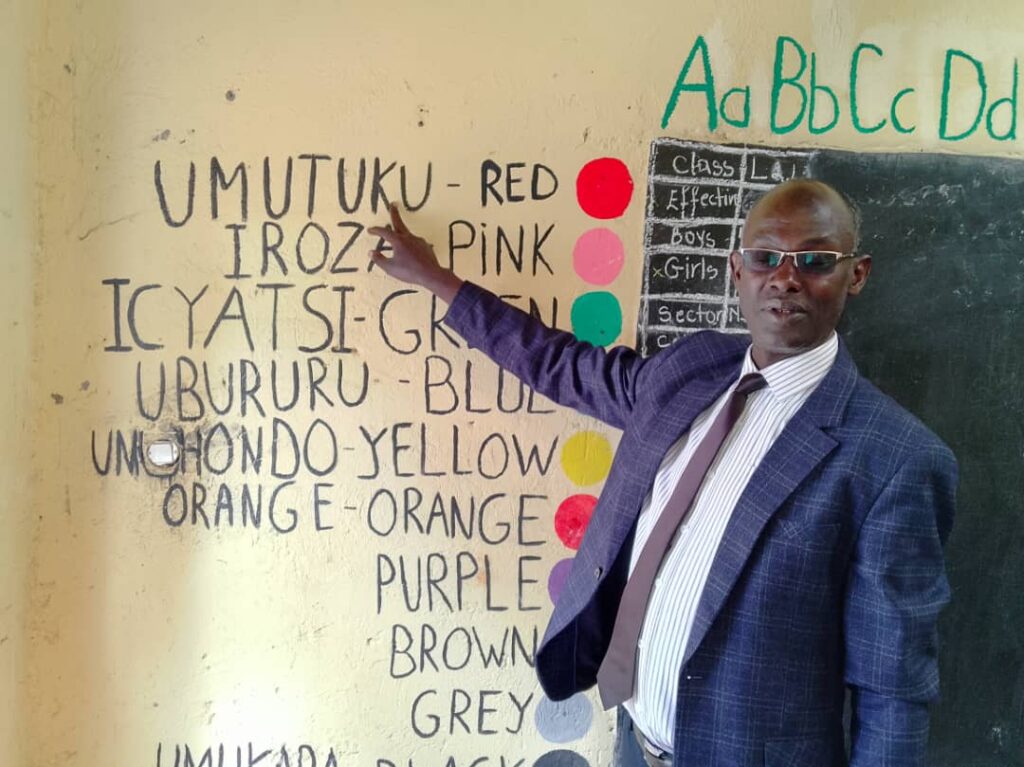 Aa Bb Cc Dd
UMUTUKU - RED
IROZA - PINK
ICYATSI - GREEN
UBURURU - BLUE
UMUHONDO - YELLOW
ORANGE - ORANGE
PURPLE
BROWN
GREY
UMUKARA BLACK
Class
Boys
Girls
Sector